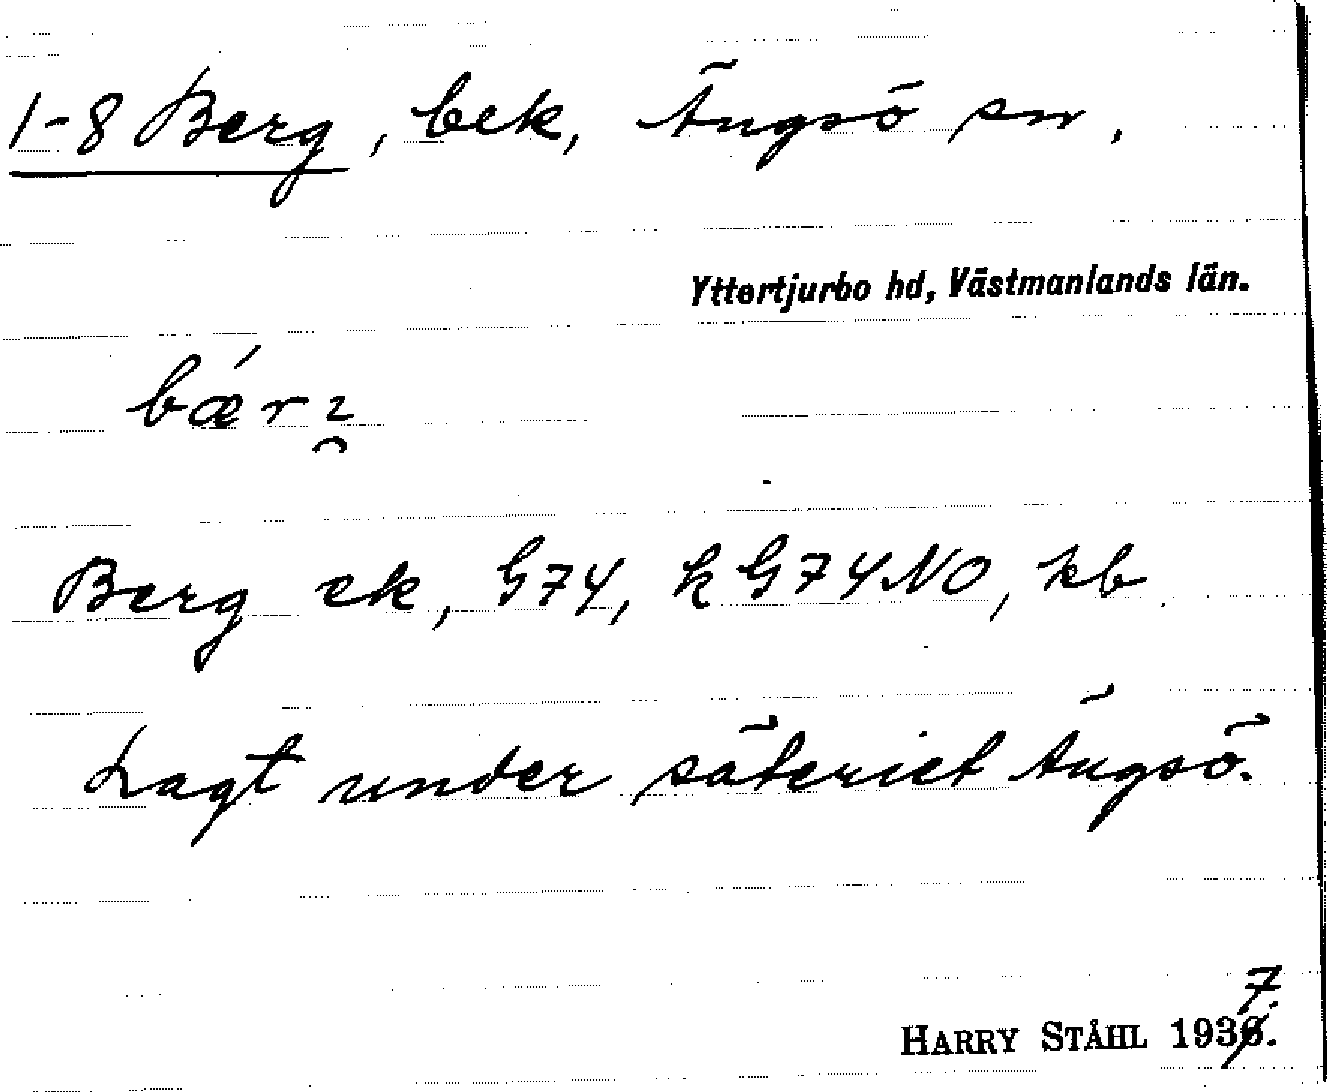 1-8 Berg, bek, Ängsö sn.
Yttertjurbo hd, Västmanlands län.
bǽrı̯
Berg ek, G74, k G74NO, kb
Lagt under säteriet Ängsö.
7
HARRY STÅHL 1936.